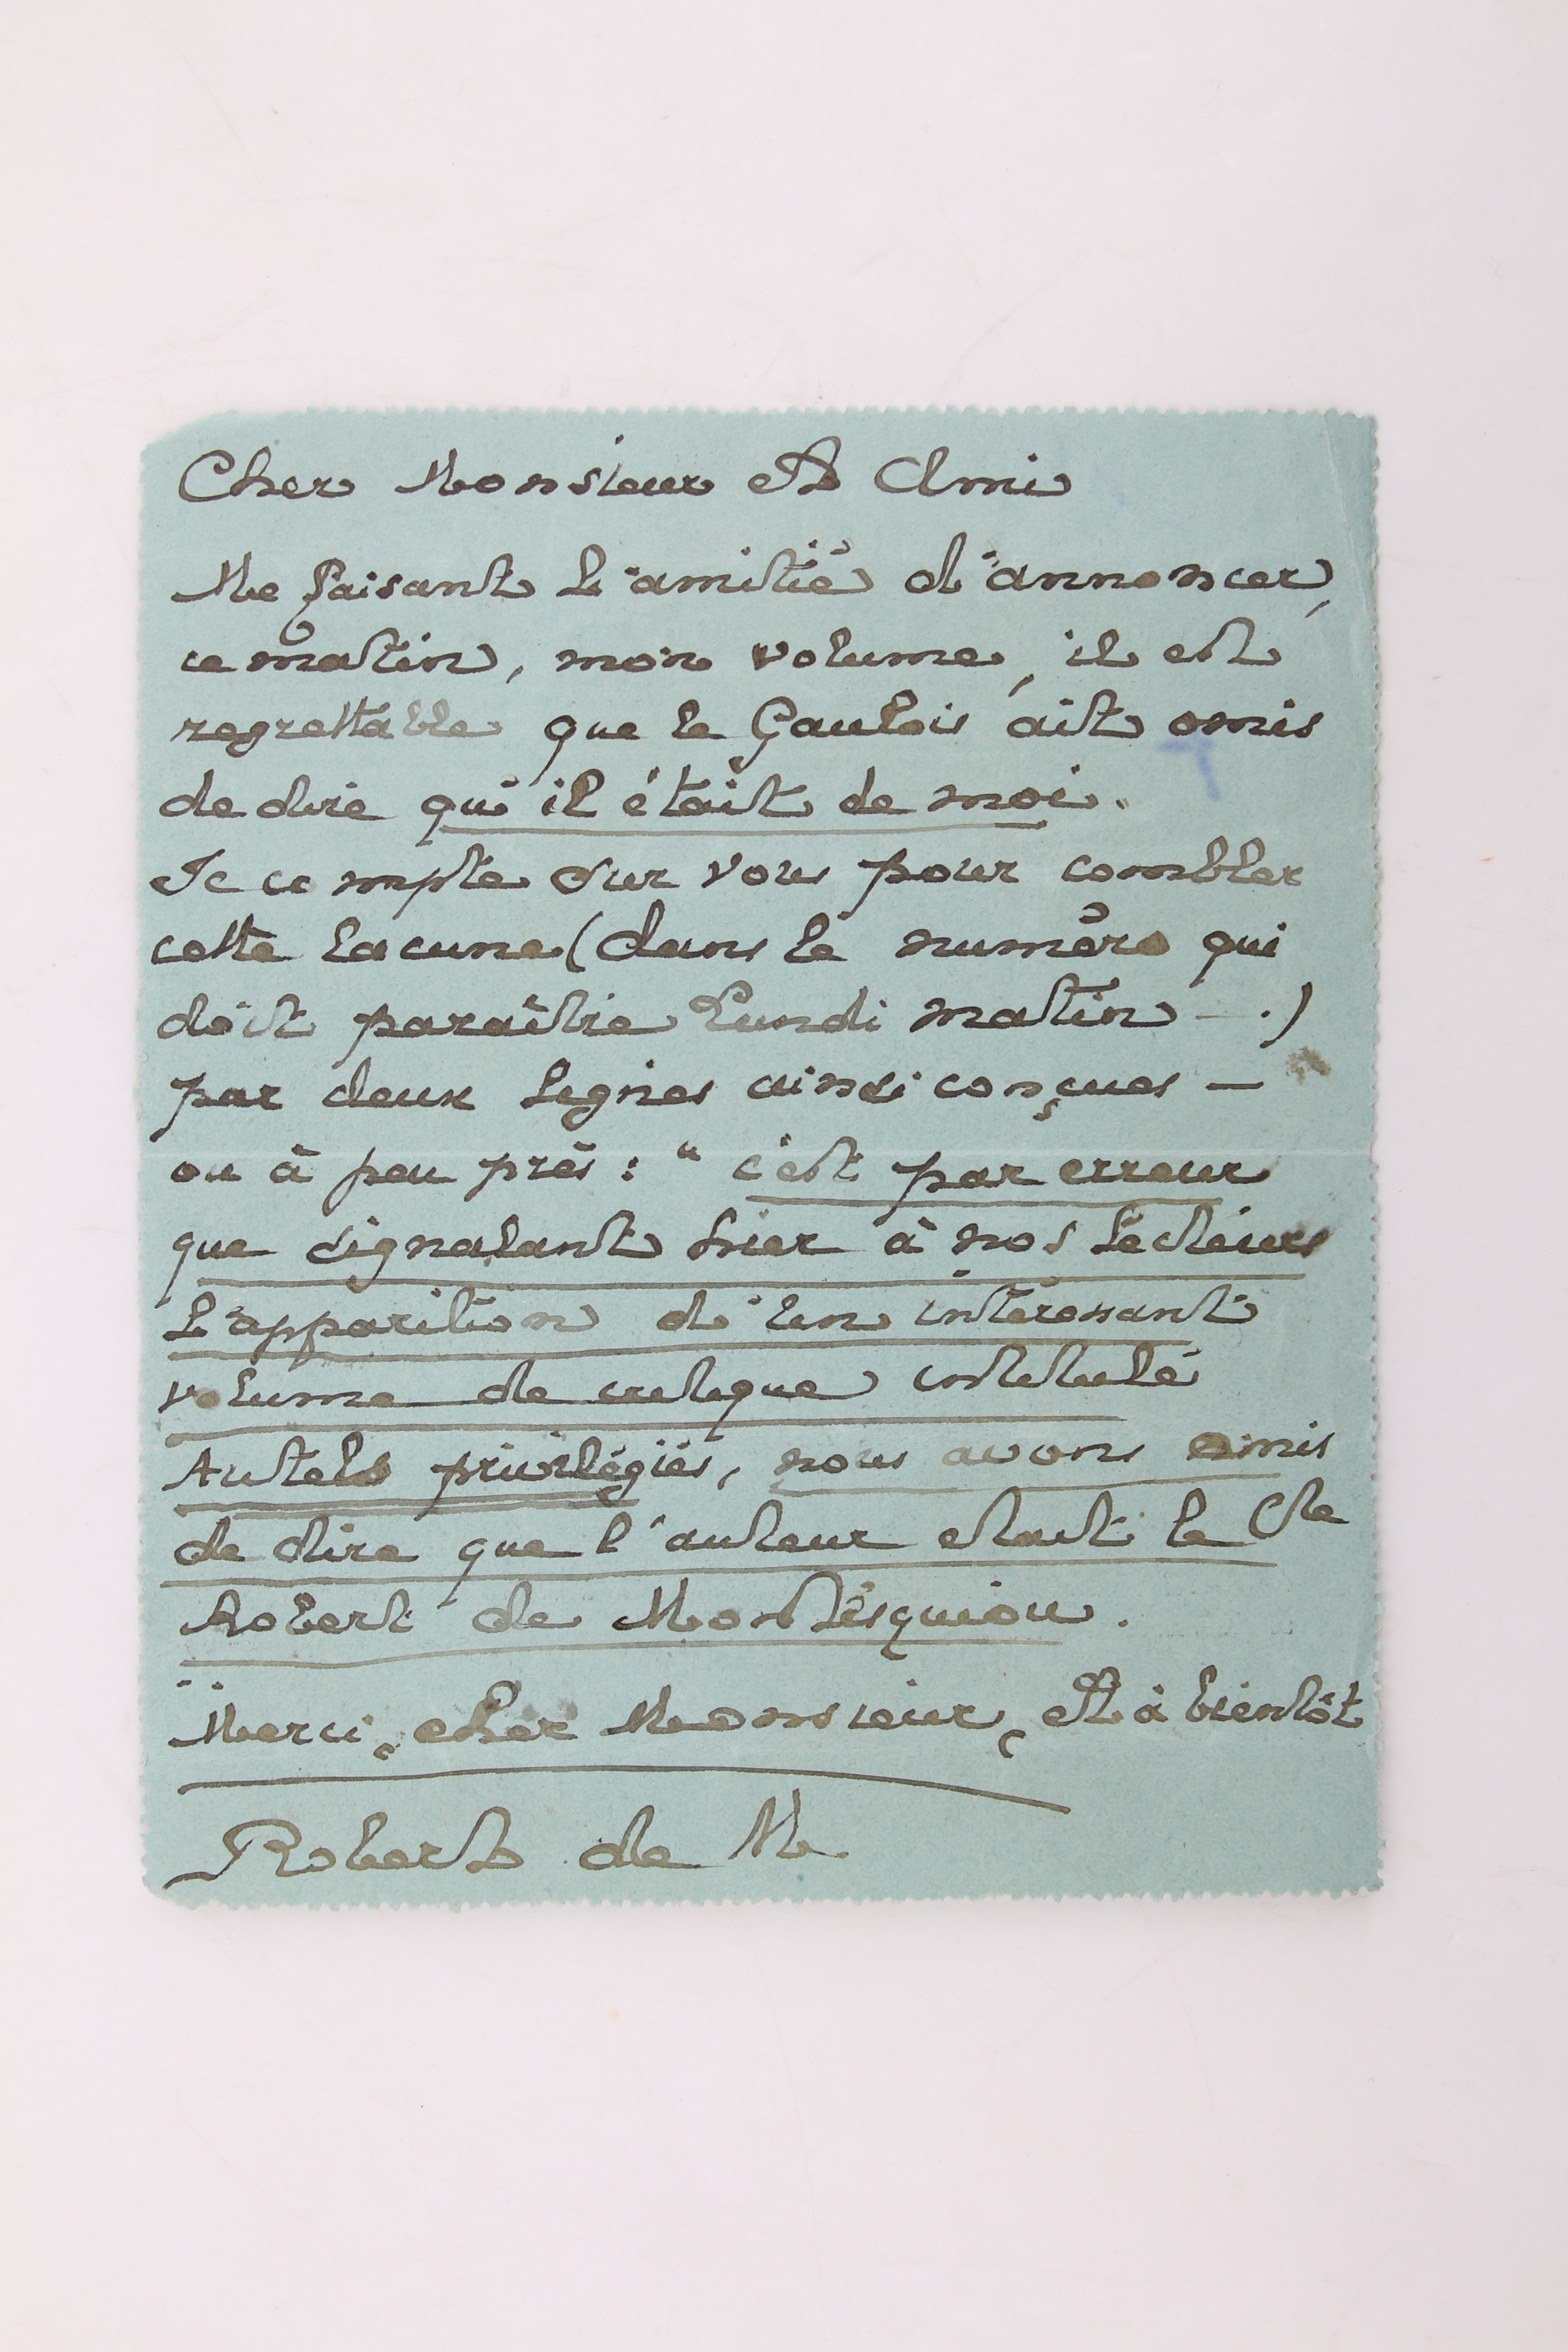 Cher Monsieur et Ami
Me faisant l'amitié d'annoncer,
ce matin, mon volume, il est
regrettable que le Gaulois ait omis
de dire qu'il était de moi.
Je compte sur vous pour combler
cette lacune (dans le numéro qui
doit paraître Lundi matin — .)
par deux lignes ainsi conçues —
ou à peu près : " c'est par erreur
que signalant hier à nos lecteurs
l'apparition d'un intéressant
volume de critique intitulé
Autels privilégiés, nous avons omis
de dire que l'auteur était le Cte
Robert de Montesquiou.
"
Merci, cher Monsieur, et à bientôt
Robert de M